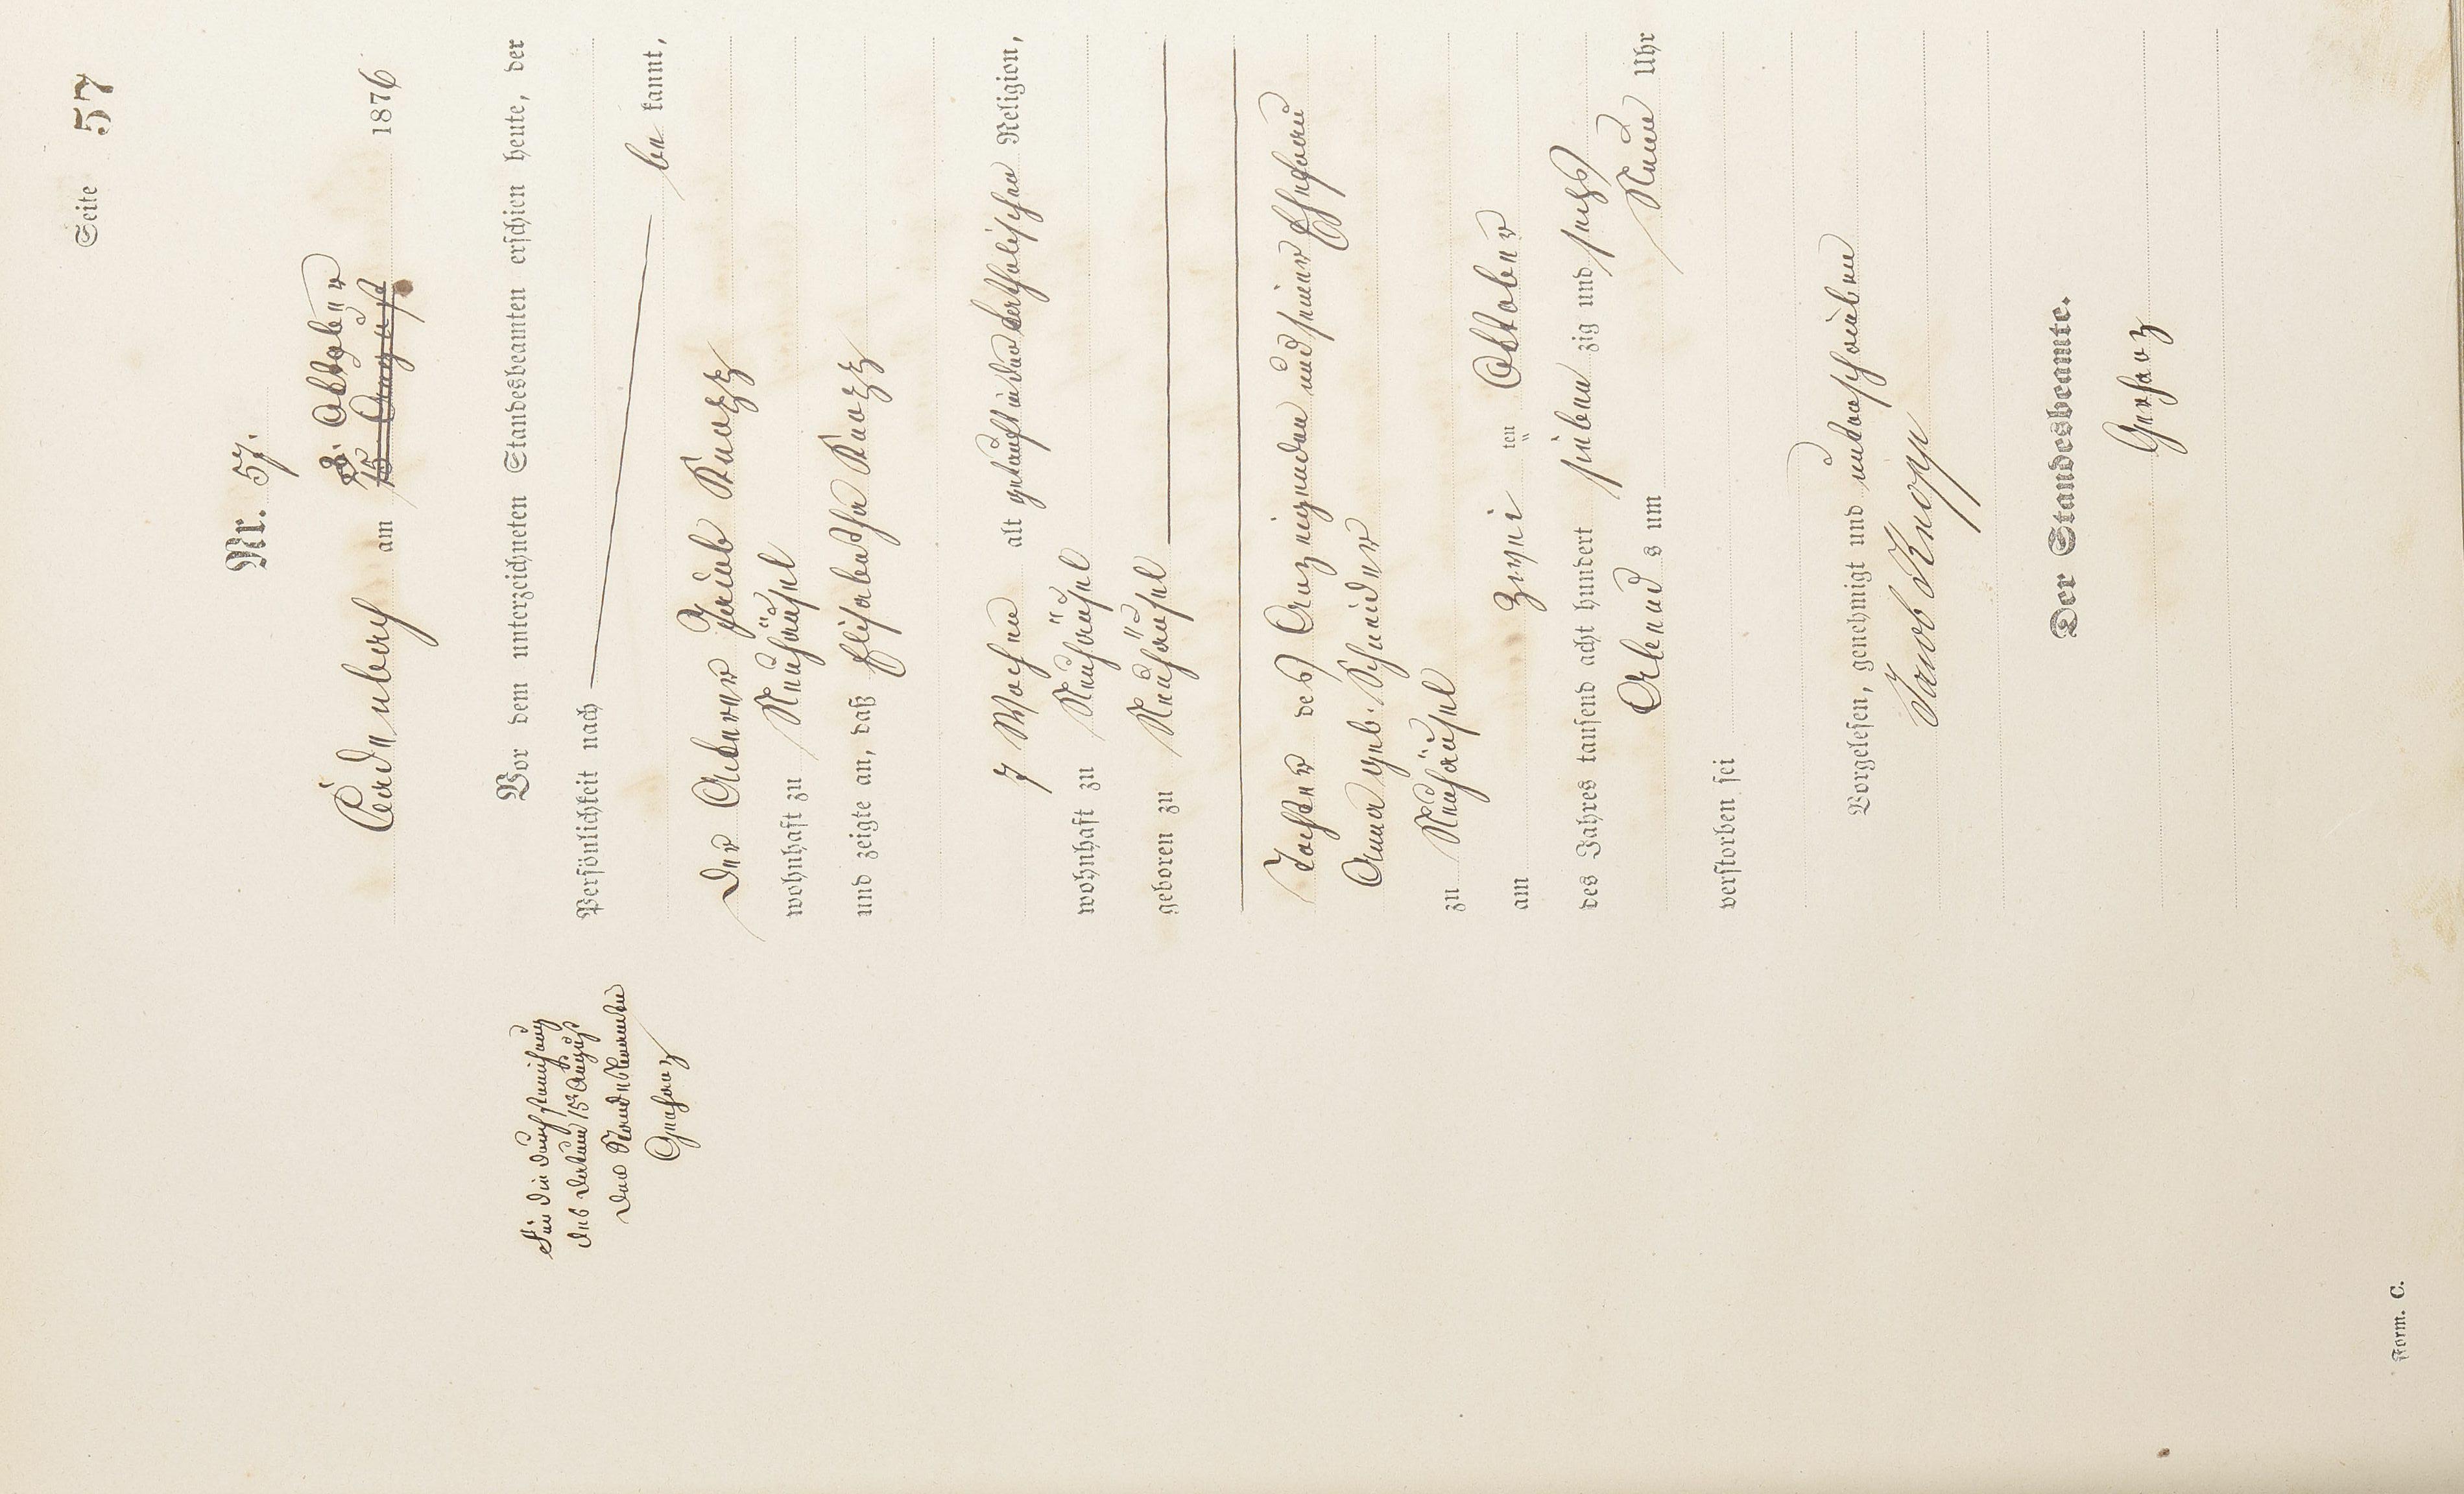 Seite 57
Nr. 57.
3. Oktober
Cadenbach am 15 August 1876
Vor dem unterzeichneten Standesbeamten erschien heute, der
Persönlichkeit nach
be kannt,
der Ackerer Jakob Knopp
wohnhaft zu Neuhäusel
und zeigte an, daß Elisabetha Knopp
7 Wochen alt getauft in der katholischen Religion,
wohnhaft zu Neuhäusel
geboren zu Neuhäusel
Tochter des Anzeigenden und seiner Ehefrau
Anna geb. Schneider
zu Neuhäusel
am zwei ten Oktober
des Jahres tausend acht hundert sieben zig und sechs
Abend s um Neun Uhr
verstorben sei
Vorgelesen, genehmigt und unterschrieben
Jacob Knopp
Der Standesbeamte.
Für die Durchstreichung
des Datum 15. August
Der Standesbeamte
Form. C.